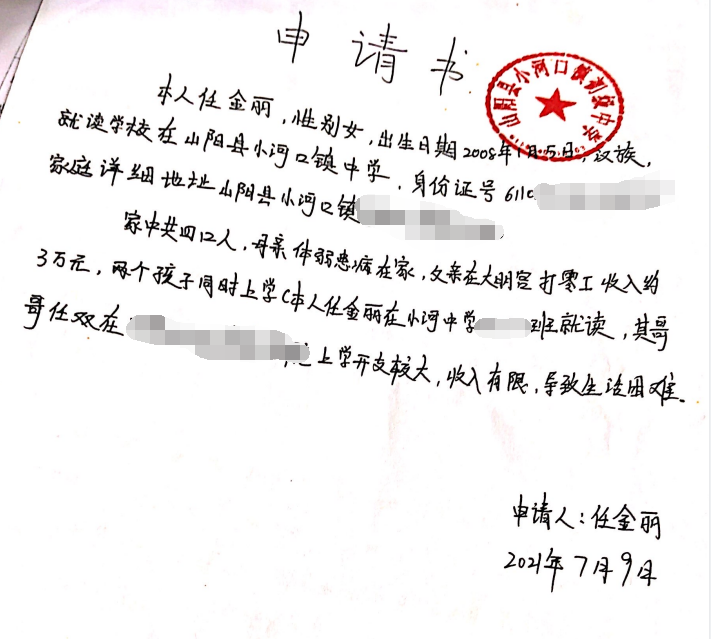 申请书
山阳县小河口镇初级中学
本人任金丽，性别女，出生日期2008年1月5日，汉族，
就读学校在山阳县小河口镇中学．身份证号6110
家庭详细地址山阳县小河口镇
家中共四口人，母亲体弱患病在家，父亲在大明宫打零工收入约
3万元，两个孩子同时上学（本人任金丽在小河中学班就读，其哥
哥任双在上学开支较大，收入有限，导致生活困难。
申请人：任金丽
2021年7月9日